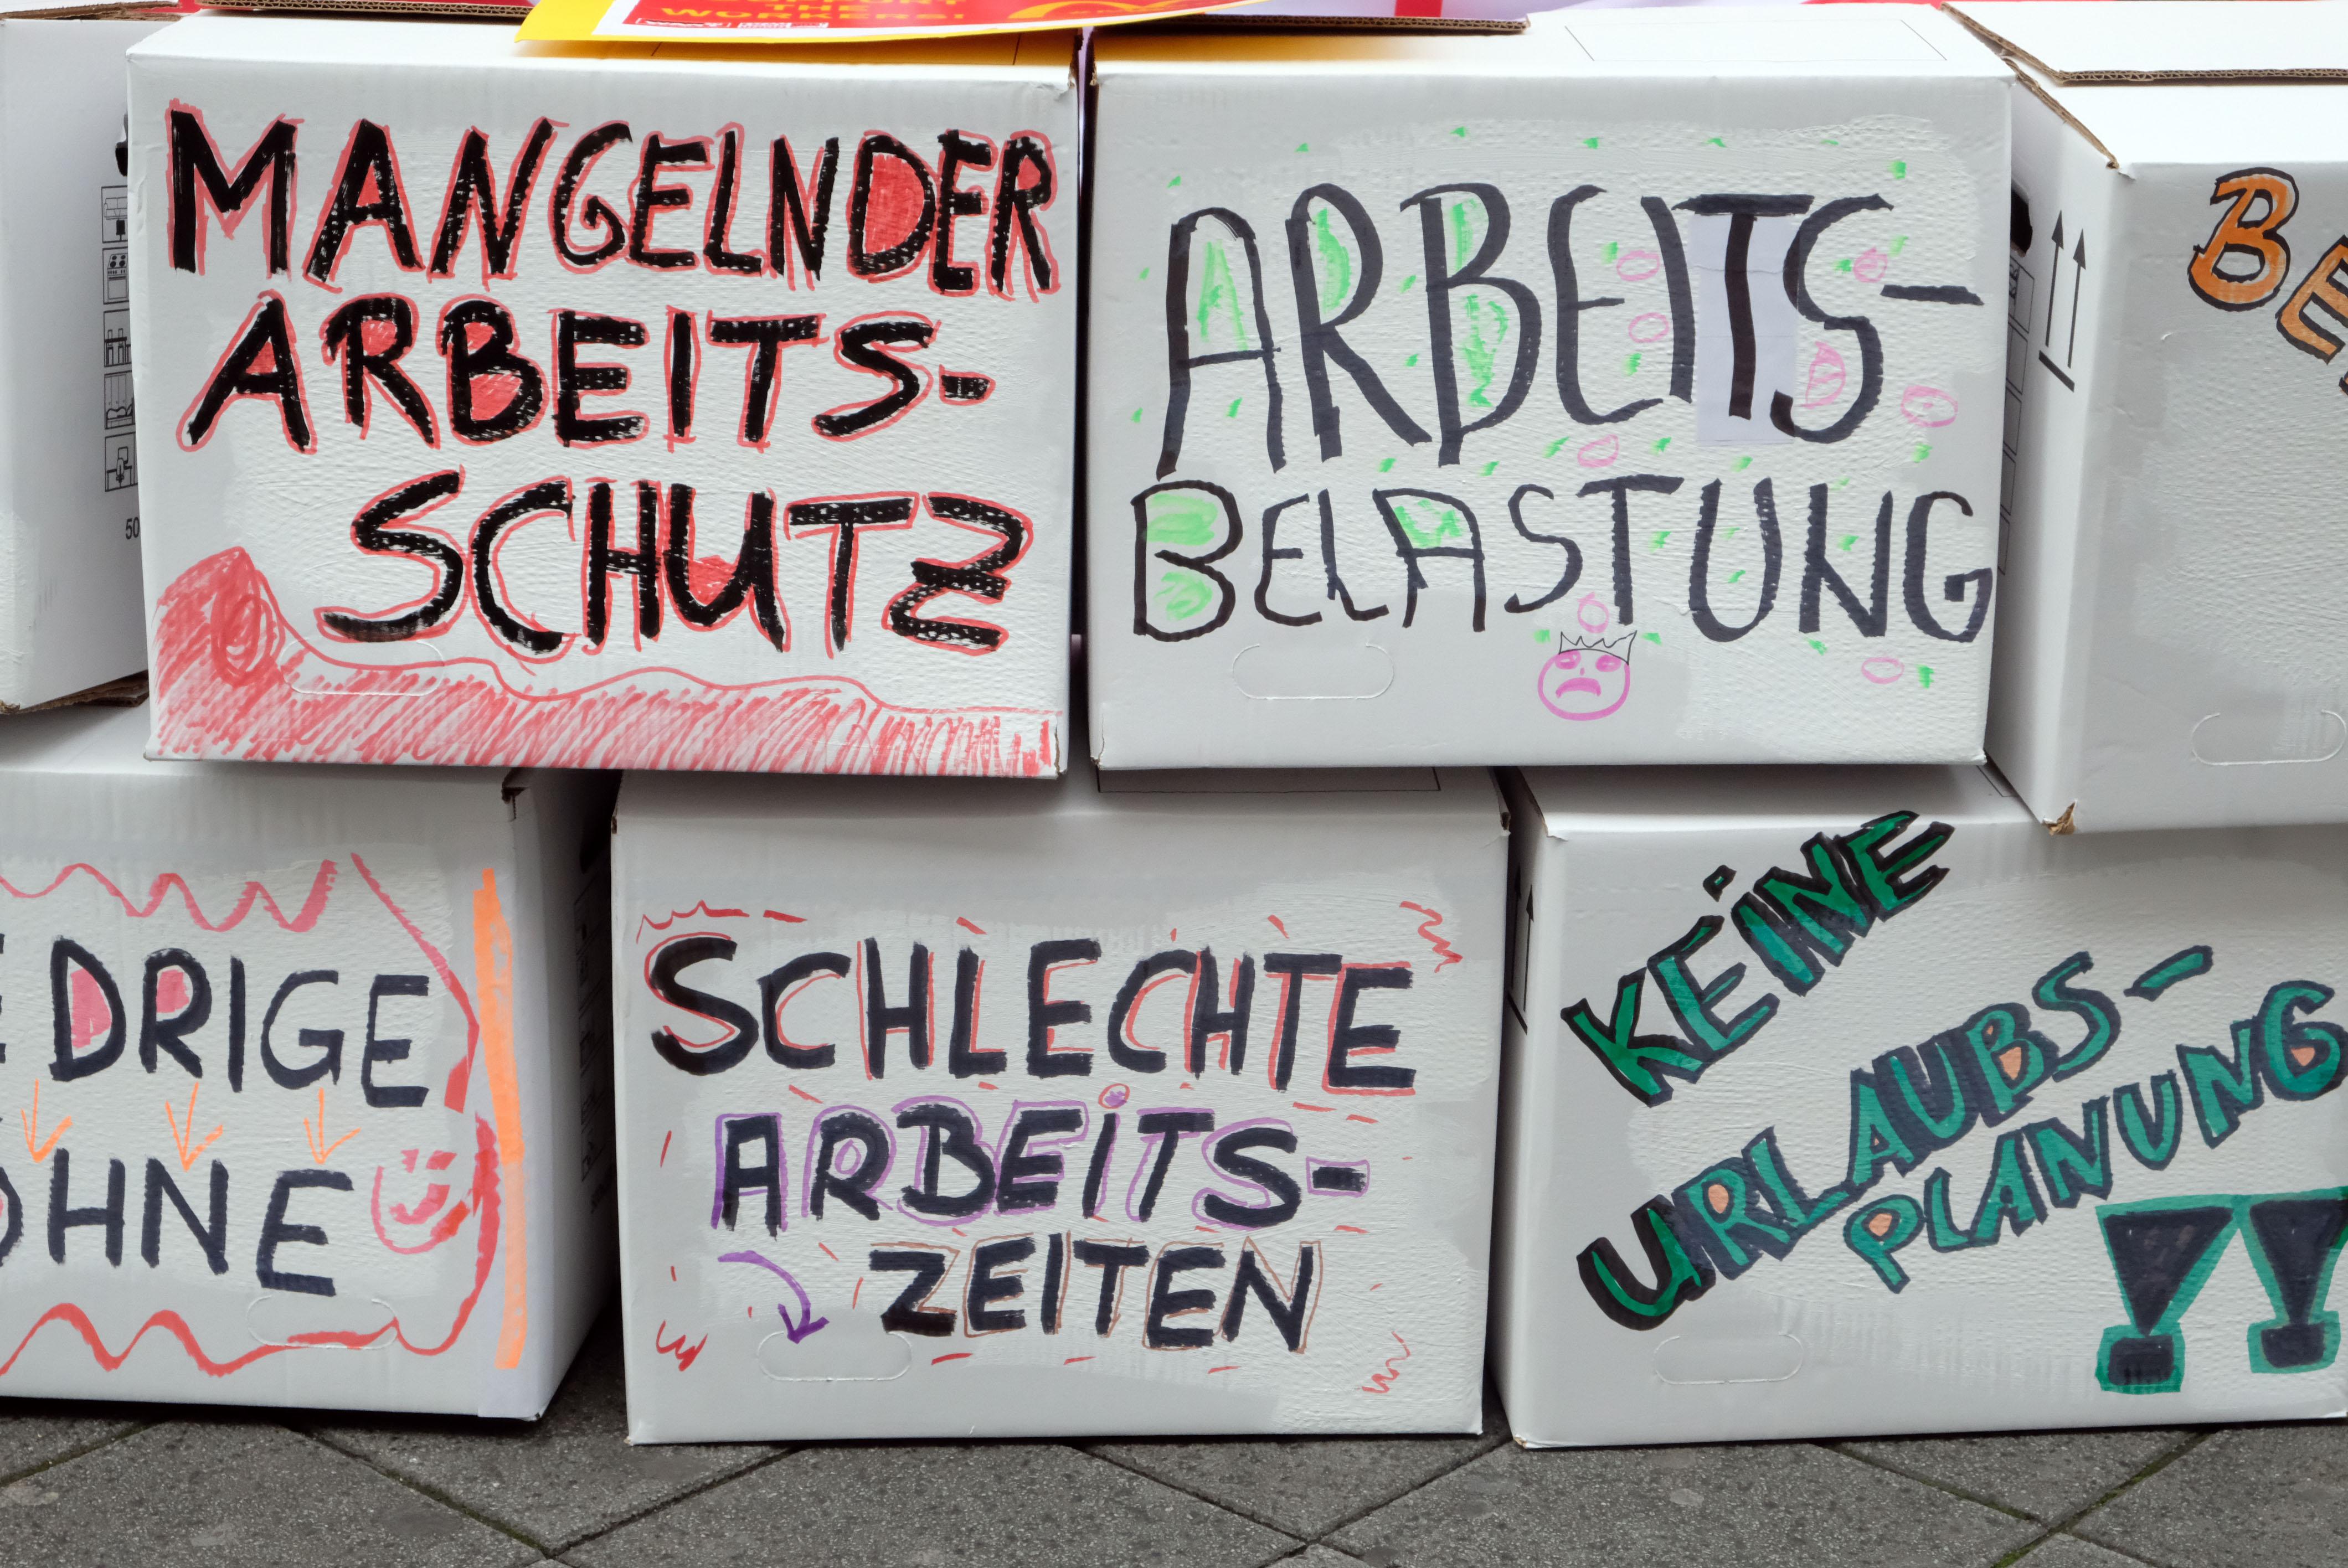 THE
WORKERS!
MANGELNDER
ARBEITS-
SCHUTZ
ARBEITS-
BELASTUNG
BE
50
DRIGE
OHNE
SCHLECHTE
ARBEITS-
ZEITEN
KEINE
URLAUBS-
PLANUNG
!!